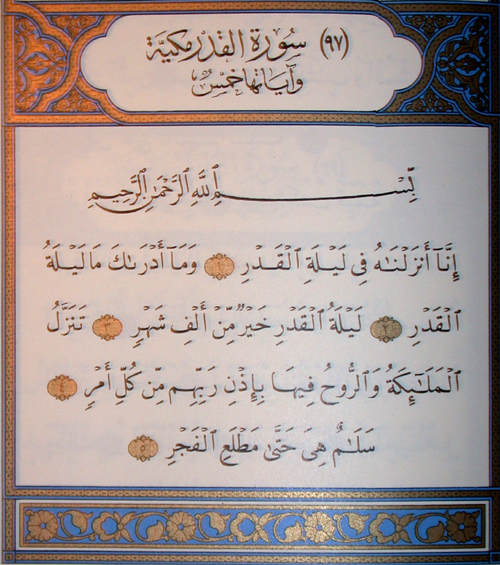 (٩٧) سُورَة القَدْرِ مَكِيَّة
وَآيَاتُهَا خَمْسٌ
بِّسْمِ ٱللَّهِ ٱلرَّحْمَٰنِ ٱلرَّحِيمِ
إِنَّآ أَنزَلْنَٰهُ فِى لَيْلَةِ ٱلْقَدْرِ ١ وَمَآ أَدْرَىٰكَ مَا لَيْلَةُ
ٱلْقَدْرِ ٢ لَيْلَةُ ٱلْقَدْرِ خَيْرٌ مِّنْ أَلْفِ شَهْرٍ ٣ تَنَزَّلُ
ٱلْمَلَٰٓئِكَةُ وَٱلرُّوحُ فِيهَا بِإِذْنِ رَبِّهِم مِّن كُلِّ أَمْرٍ ٤
سَلَٰمٌ هِىَ حَتَّىٰ مَطْلَعِ ٱلْفَجْرِ ٥